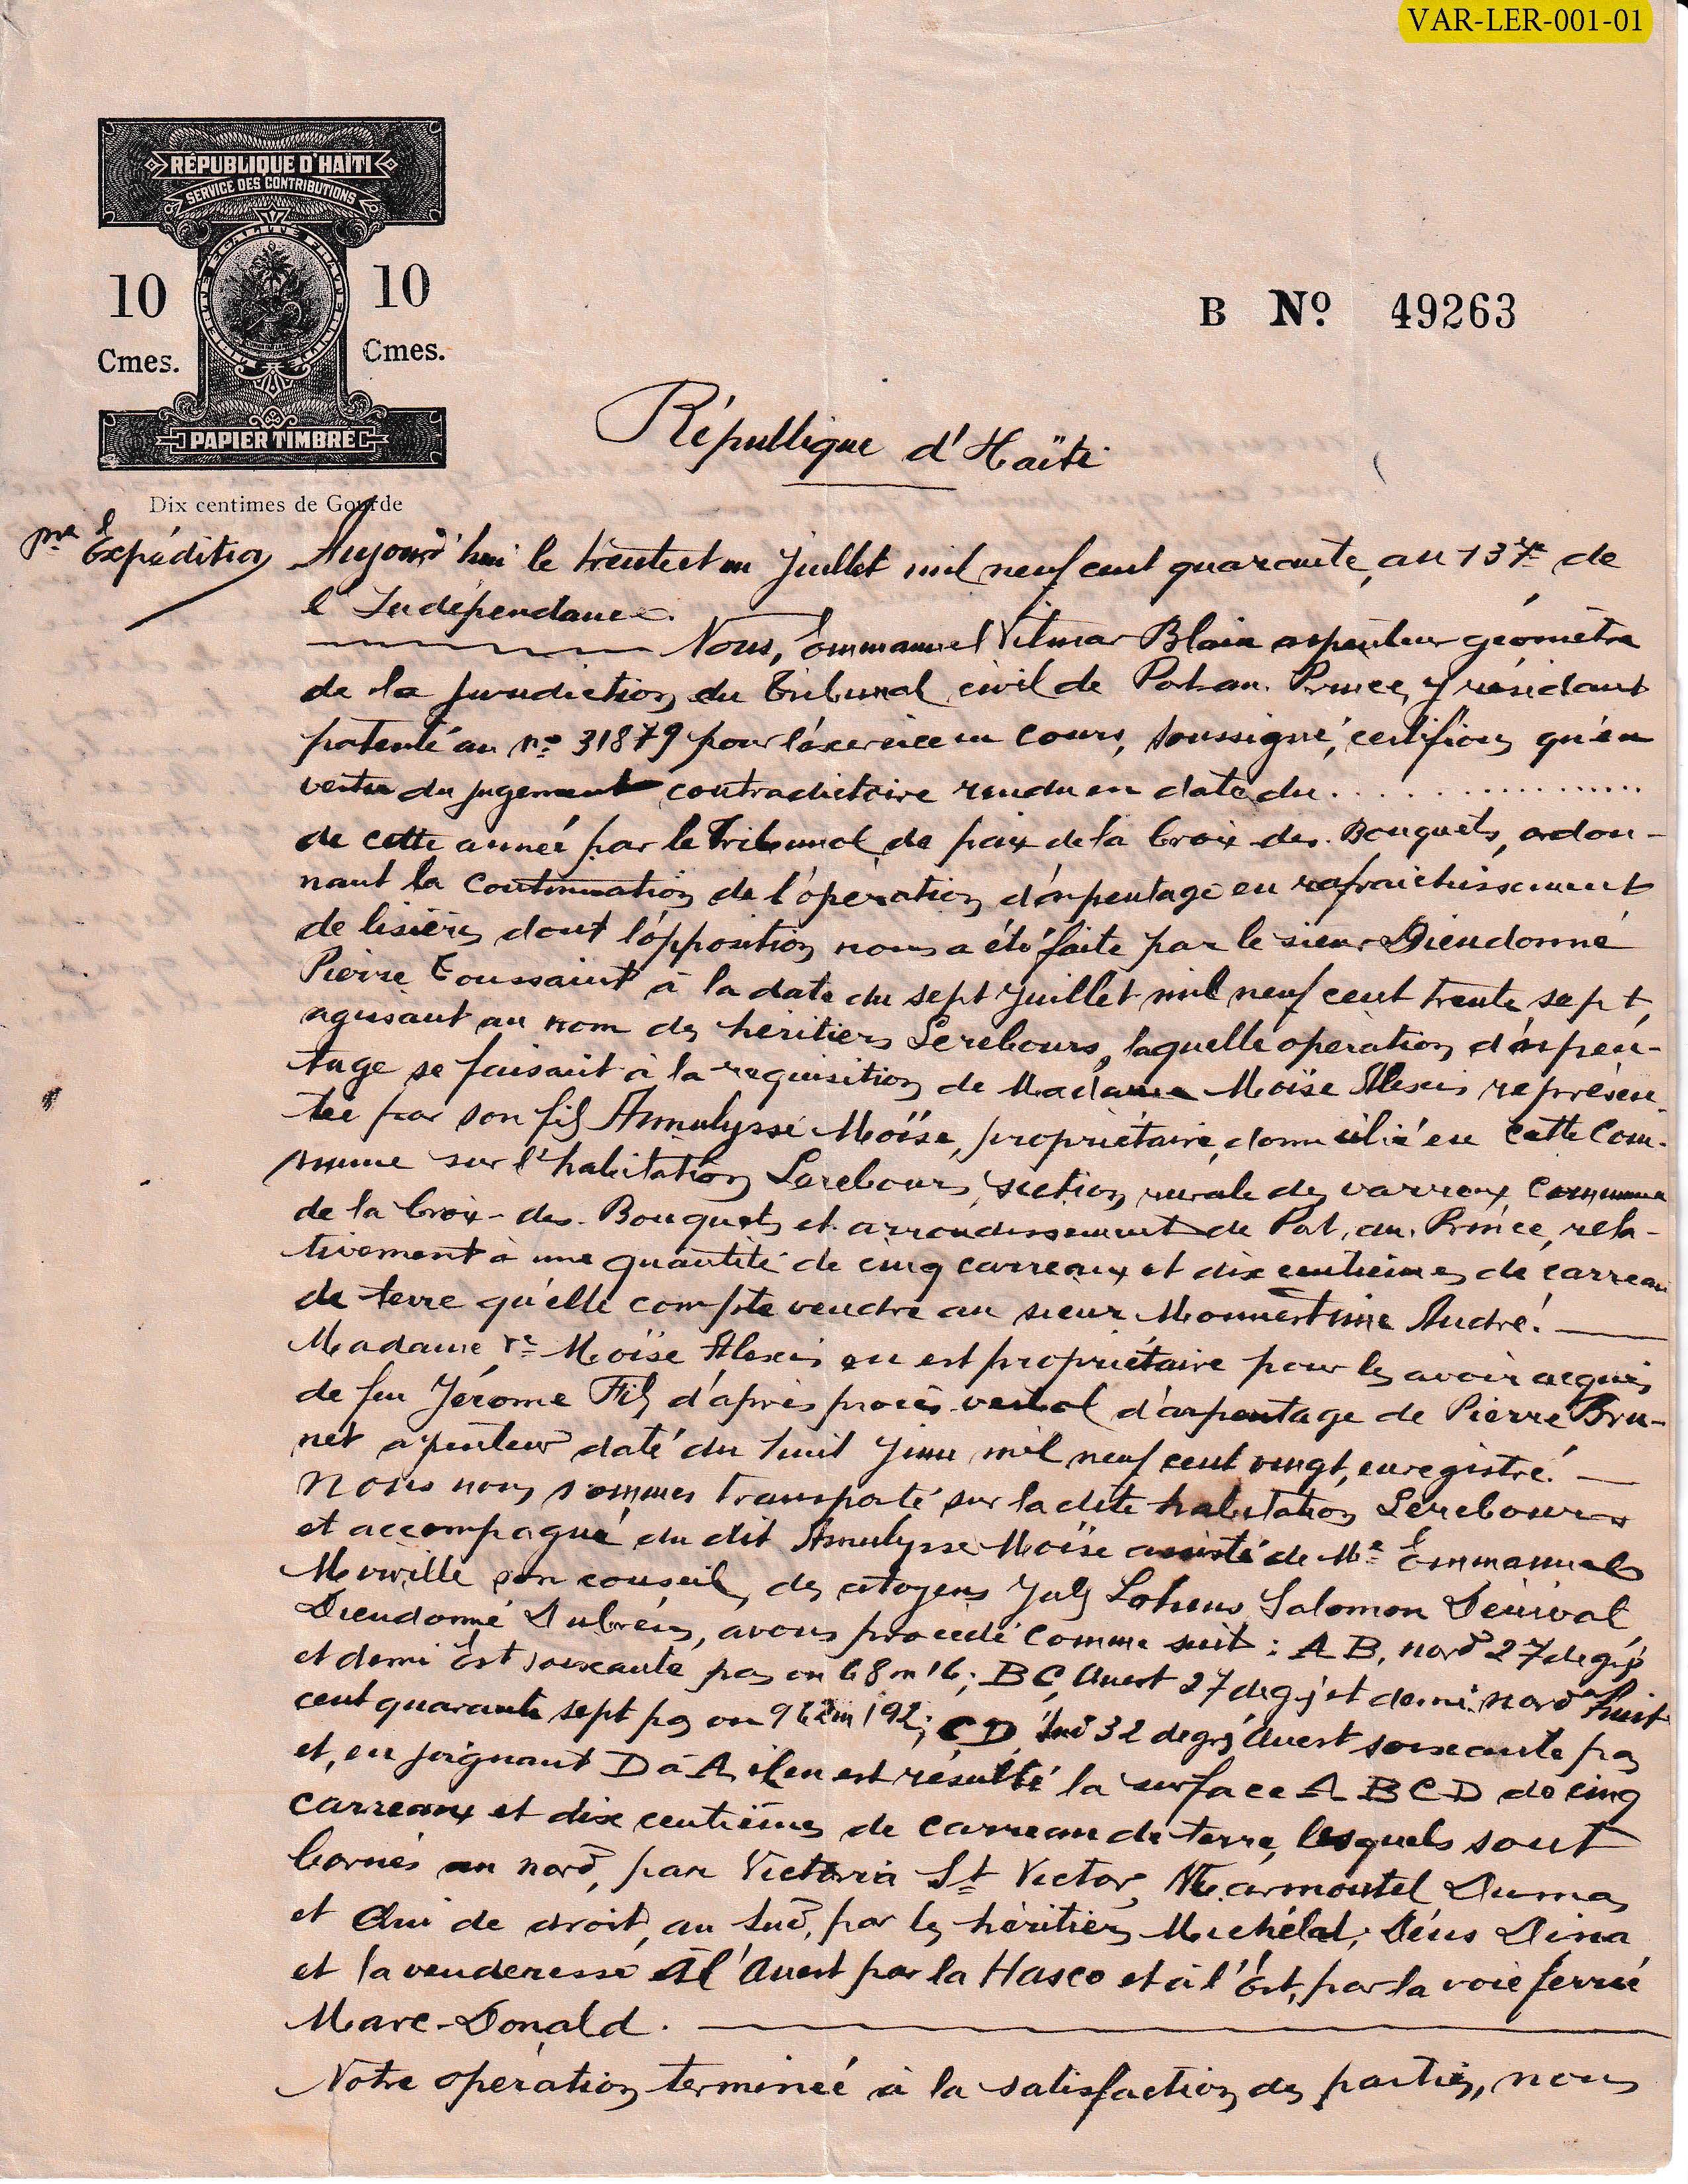 VAR-LER-001-01
RÉPUBLIQUE D'HAÏTI
SERVICE DES CONTRIBUTIONS
10 10
Cmes. Cmes.
B Nº 49263
PAPIER TIMBRÉ
Dix centimes de Gourde
République d'Haïti
Expédition
Aujourd'hui le trente et un Juillet mil neuf cent quarante, an 137e de
l'Indépendance.
Nous, Emmanuel Vilmar Blain arpenteur géomètre
de la juridiction du Tribunal civil de Port-au-Prince, y résidant
patenté au no 31879 pour l'exercice en cours, soussigné, certifions qu'en
vertu du jugement contradictoire rendu en date du ................
de cette année par le Tribunal de paix de la Croix-des-Bouquets, ordon-
nant la continuation de l'opération d'arpentage en rafraichissement
de lisières dont l'opposition nous a été faite par le sieur Dieudonné
Pierre Toussaint à la date du sept Juillet mil neuf cent trente sept,
agissant au nom des héritiers Lerebours, laquelle opération d'arpen-
tage se faisant à la réquisition de Madame Moïse Alexis représen-
tée par son fils Annulysse Moïse, propriétaire, domicilié en cette Com-
mune sur l'habitation Lerebours, section rurale des varreux Commune
de la Croix-des-Bouquets et arrondissement de Port-au-Prince, rela-
tivement à une quantité de cinq carreaux et dix centièmes de carreau
de terre qu'elle compte vendre au sieur Monnertime André.
Madame Ve Moïse Alexis en est propriétaire pour les avoir acquis
de feu Jérome Fils d'après procès-verbal d'arpentage de Pierre Bru-
net arpenteur daté du huit Juin mil neuf cent vingt, enregistré.
Nous nous sommes transporté sur la dite habitation Lerebours
et accompagné du dit Annulysse Moïse assisté de Me Emmanuel
Merville son conseil, des citoyens Jules Salomon Dérival
Dieudonné Dubréus, avons procédé comme suit : A B, nord 27 degrés
et demi Est soixante pas ou 68m16; BC, Ouest 27 degrés et demi nord huit
cent quarante sept pas ou 962m192; CD, Sud 32 degrés Ouest soixante pas
et, en joignant D à A, il en est résulté la surface A B C D de cinq
carreaux et dix centièmes de carreau de terre, lesquels sont
bornés au nord, par Victoria St Victor, Marmontel Dumas
et Qui de droit, au Sud, par les héritiers Michélat, Déus Dina
et la venderesse à l'Ouest par la Hasco et à l'Est, par la voie ferrée
Marc-Donald.
Notre opération terminée à la satisfaction des parties, nous